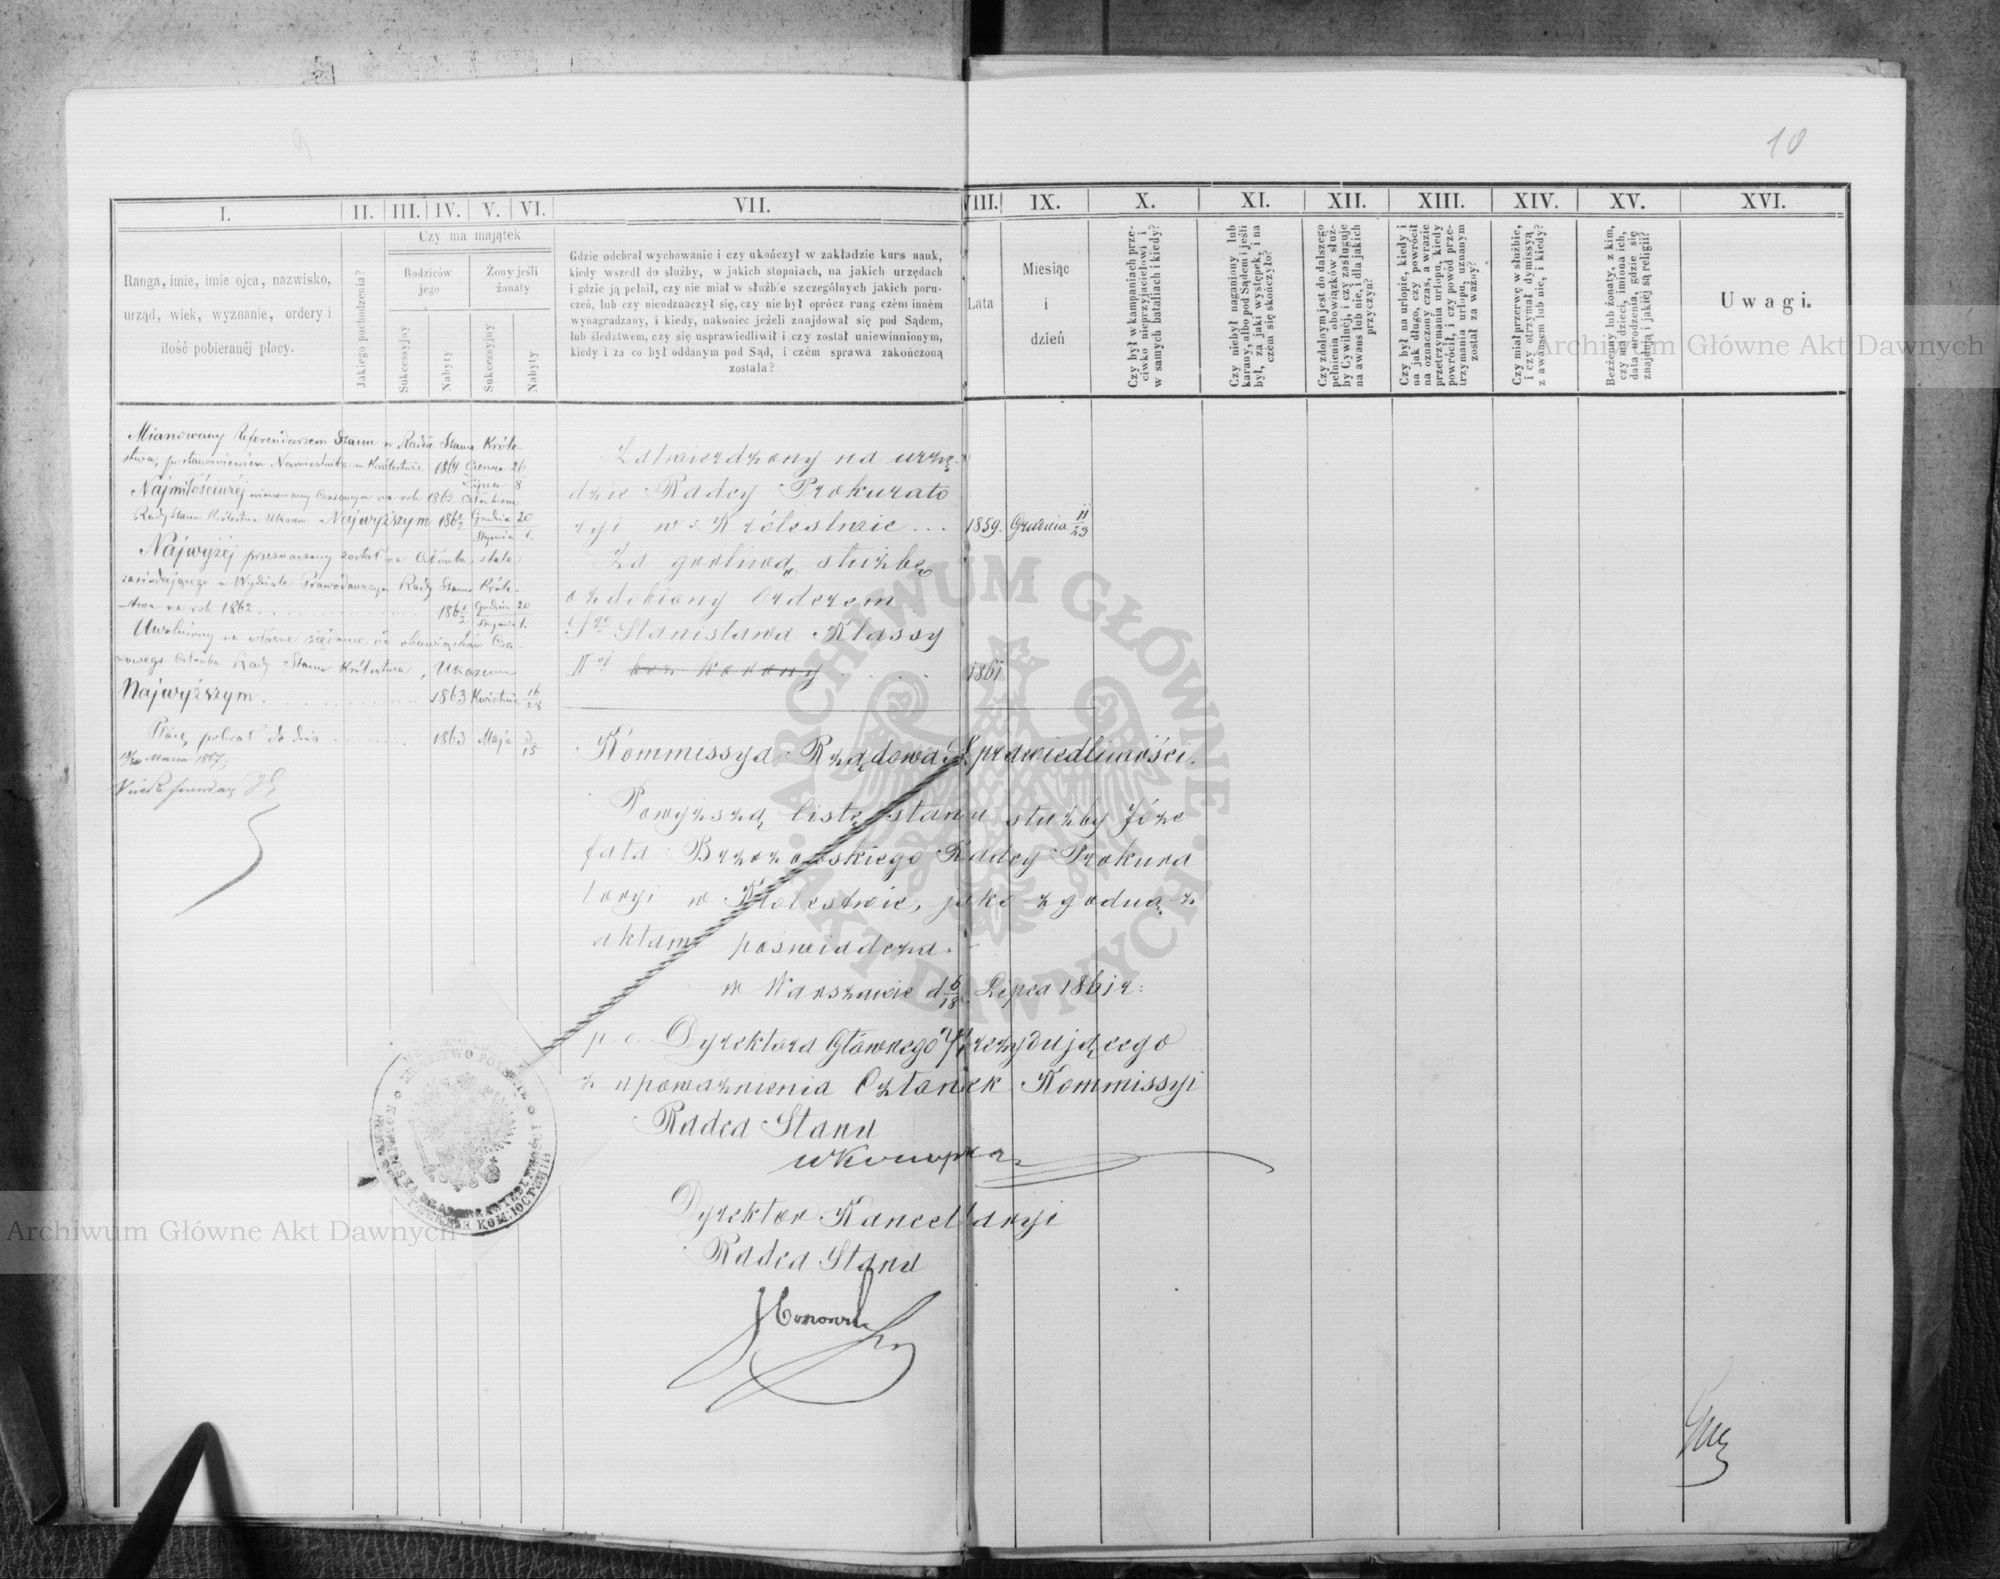 9
10
I.
II.
III.
IV.
V.
VI.
VII.
VIII.
IX.
X.
XI.
XII.
XIII.
XIV.
XV.
XVI.
Ranga, imie, imie ojca, nazwisko,
urząd, wiek, wyznanie, ordery i
ilość pobieranéj płacy.
Jakiego pochodzenia?
Czy ma majątek
Rodziców
jego
Żony jeśli
żonaty
Sukcessyjny
Nabyty
Sukcessyjny
Nabyty
Gdzie odebrał wychowanie i czy ukończył w zakładzie kurs nauk,
kiedy wszedł do służby, w jakich stopniach, na jakich urzędach
i gdzie ją pełnił, czy nie miał w służbie szczególnych jakich poru-
czeń, lub czy nieodznaczył się, czy nie był oprócz rang czém inném
wynagradzany, i kiedy, nakoniec jeżeli znajdował się pod Sądem,
lub śledztwem, czy się usprawiedliwił i czy został uniewinnionym,
kiedy i za co był oddanym pod Sąd, i czém sprawa zakończoną
została?
Lata
Miesiąc
i
dzień
Czy był w kampaniach prze-
ciwko nieprzyjacielowi i
w samych bataliach i kiedy?
Czy niebył naganiony lub
karany, albo pod Sądem i jeśli
był, za jaki występek, i na
czém się skończyło?
Czy zdolnym jest do dalszego
pełnienia obowiązków służ-
by Cywilnéj, i czy zasługuje
na awans lub nie, i dla jakich
przyczyn?
Czy był na urlopie, kiedy i
na jak długo, czy powrócił
na oznaczony czas, a w razie
przetrzymania urlopu, kiedy
powrócił, i czy powód prze-
trzymania urlopu, uznanym
został za ważny?
Czy miał przerwę w służbie,
i czy otrzymał dymissyą
z awansem lub nie, i kiedy?
Bezżenny lub żonaty, z kim,
czy ma dzieci, imiona ich,
data urodzenia, gdzie się
znajdują i jakiéj są religii?
Uwagi.
Mianowany Referendarzem Stanu w Radzie Stanu Króle-
stwa, postanowieniem Namiestnika w Królestwie 1861 Czerwca 26
Lipca 8
Najmiłościwiéj mianowany Czasowym na rok 1862 Członkiem
Rady Stanu Królestwa Ukazem Najwyższym 1861/2 Grudnia 20
Stycznia 1.
Najwyżéj przeznaczony został na Członka, stale
zasiadającego w Wydziale Prawodawczym Rady Stanu Króle-
stwa na rok 1862 1861/2 Grudnia 20
Stycznia 1.
Uwolniony na własne żądanie od obowiązków Cza-
sowego Członka Rady Stanu Królestwa, Ukazem
Najwyższym 1863 Kwietnia 16/28
Płacę pobrał do dnia 1863 Maja 3/15
Marca 1867
Zatwierdzony na urzę-
dzie Radcy Prokurato
ryi w Królestwie ... 1859. Grudnia 11/23
Za gorliwą służbę
ozdobiony Orderem
Sgo Stanisława Klassy
IIej bez Korony 1861
Kommissya Rządowa Sprawiedliwości.
Powyższą listę stanu służby Józe
fata Brzozowskiego Radcy Prokura
toryi w Królestwie, jako zgodną z
aktami poświadcza.
w Warszawie d 6/18 Lipca 1861 r:
p. o. Dyrektora Głównego Prezydującego
z upoważnienia Członek Kommissyi
Radca Stanu
Dyrektor Kancellaryi
Radca Stanu
Archiwum Główne Akt Dawnych
Archiwum Główne Akt Dawnych
ARCHIWUM GŁÓWNE
AKT DAWNYCH